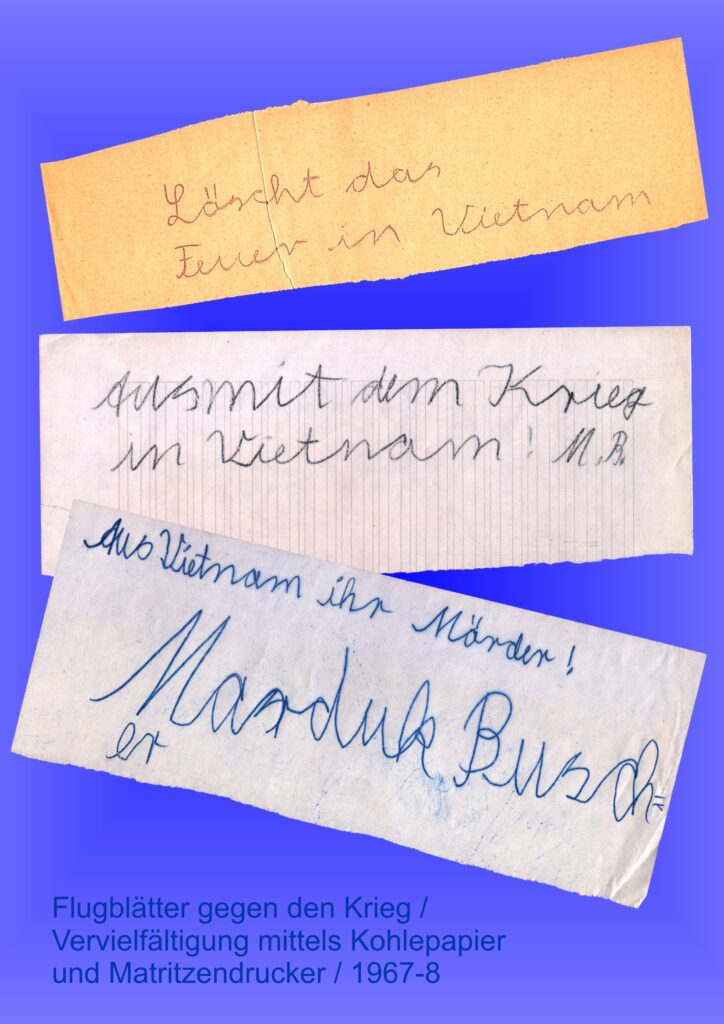 Löscht das
Feuer in Vietnam
Ausmit dem Krieg
in Vietnam! M.B.
Aus Vietnam ihr Mörder!
Marduk Busch=
er
Flugblätter gegen den Krieg /
Vervielfältigung mittels Kohlepapier
und Matritzendrucker / 1967-8